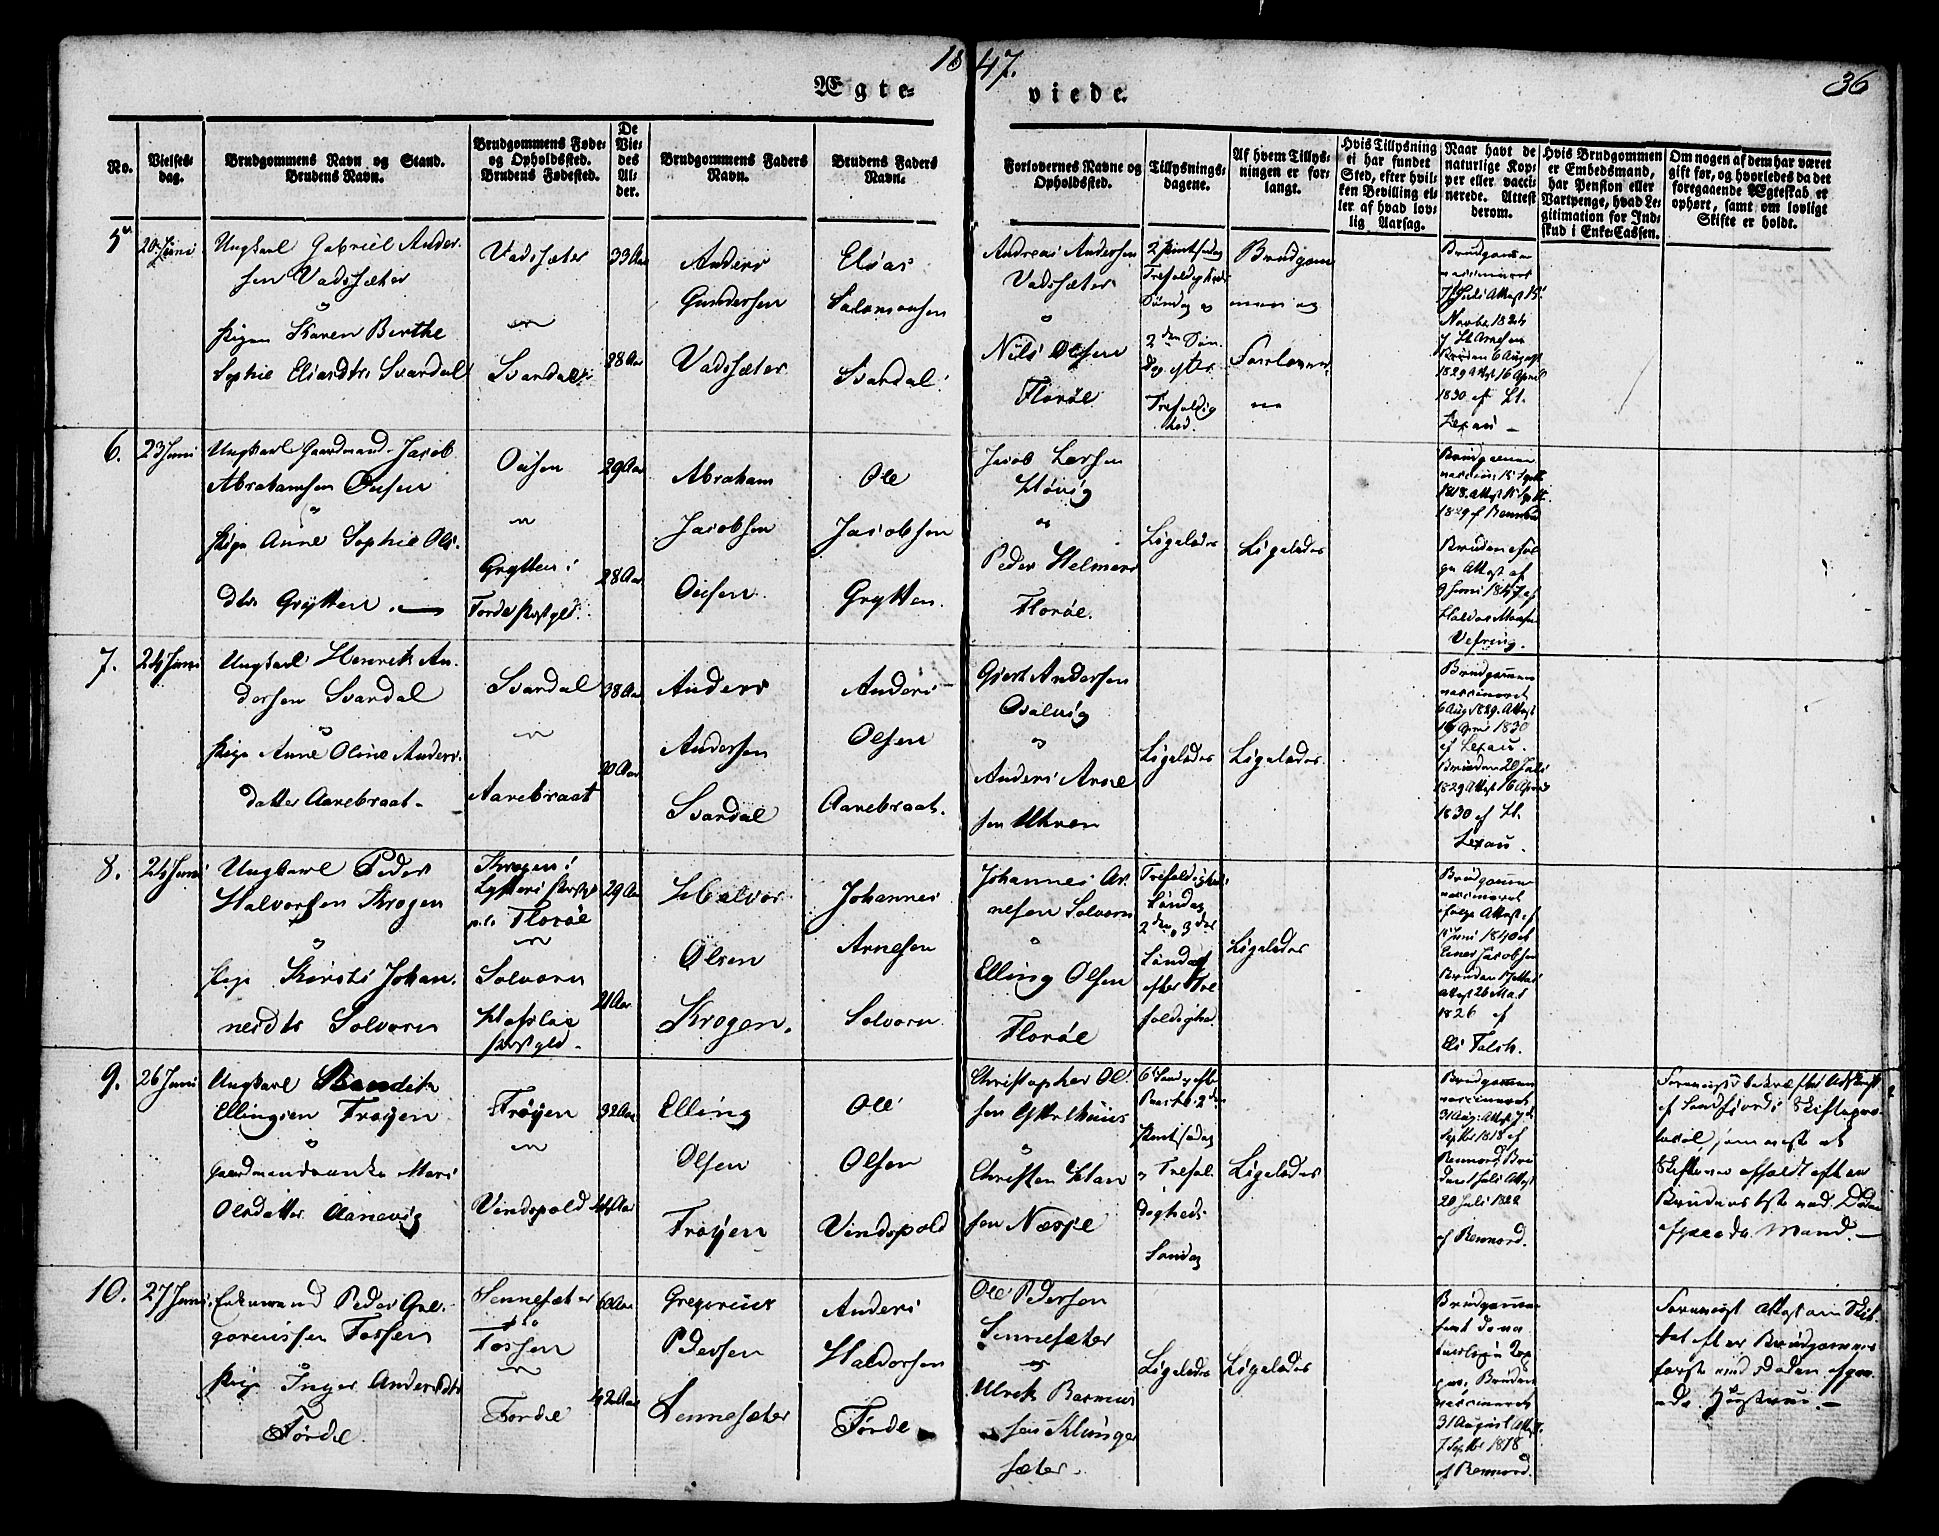 1847.
36
Ægteviede.
No.
Vielses-
dag.
Brudgommens Navn og Stand.
Brudens Navn.
Brudgommens Føde-
og Opholdssted.
Brudens Fødested.
De
Vie-
des
Al-
der.
Brudgommens Faders
Navn.
Brudens Faders
Navn.
Forlovernes Navne og
Opholdssted.
Tillysnings-
dagene.
Af hvem Tillys-
ningen er for-
langt.
Hvis Tillysning
ei har fundet
Sted, efter hvil-
ken Bevilling el-
ler af hvad lov-
lig Aarsag.
Naar havt de
naturlige Kop-
per eller vacci-
nerede. Attest
derom.
Hvis Brudgommen
er Embedsmand,
har Pension eller
Vartpenge, hvad Le-
gitimation for Ind-
skud i Enke-Cassen.
Om nogen af dem har været
gift før, og hvorledes da det
foregaaende Ægteskab er
ophørt, samt om lovligt
Skifte er holdt.
5
20 Juni
Ungkarl Gabriel Ander-
sen Vadsæter
Pigen Karen Berthe
Sophie Eliasdtr Svardal
Vadsæter
Svardal
33 Aar
28 Aar
Anders
Gundersen
Vadsæter
Elias
Salomonsen
Svardal
Andreas Andersen
Vadsæter
Nils Olsen
Florøe
2 Pintsedag
Trefoldigheds
Søndag og
2den Søn-
dag efter
Trefoldig
hed.
Brudgom-
men og
Forloverne
Brudgommen
vaccineret
7 Juli Attest 15
Novbr 1824
Bruden 6 August
1829 Attest 16 April
1830 af Lt.
Lexau
6.
23 Juni
Ungkarl Gaardmand Jacob
Abrahamsen Ousen
Pige Anne Sophie Ols-
dtr Grytten
Ousen
Grytten i
Førde Præstgld.
29 Aar
28 Aar
Abraham
Jacobsen
Ousen
Ole
Jacobsen
Grytten.
Jacob Larsen
Høvig
Peder Helmers
Florøe.
Ligeledes
Ligeledes
Brudgommen
Attest 15 Septbr
1829 af Rennord
Bruden iføl-
ge Attest af
9 Juni 1847 af
Vefring.
7.
24 Juni
Ungkarl Henrik An-
dersen Svardal
Pige Anne Oline Anders-
datter Aarebraat
Svardal
Aarebraat
38 Aar
20 Aar
Anders
Andersen
Svardal
Anders
Olsen
Aarebraat.
Giert Andersen
Osalvig
Anders Arne
sen Uhren
Ligeledes
Ligeledes
Brudgommen
vaccineret
6 Aug 1829. Attest
16 April 1830
af Lexau.
Bruden 20 Juli
1829 Attest 16 April
1830 af Lt.
Lexau.
8.
24 Juni
Ungkarl Peder
Halvorsen Krogen
Pige Kirsti Johan-
nesdtr Solvorn
Krogen i
Lysters Præstgl
Florøe
Solvorn
Hafsloe
Præstgld.
29 Aar
21 Aar
Halvor
Olsen
Krogen.
Johannes
Arnesen
Solvorn
Johannes Ar-
nesen Solvorn
Elling Olsen
Florøe
Trefoldigheds
Søndag
2den og 3die
Søndag
efter Tre
foldighed
Ligeledes
Brudgommen
vaccineret
ifølge Attest af
Juni 1840 af
Einer Jacobsen
Bruden
Attest 26 Mai
1826 af
Eli Talsk.
9.
26 Juni
Ungkarl Bendik
Ellingsen Frøyen
Gaardmandsenke Mari
Olsdatter Aanevig
Frøyen
Vindspold
32 Aar
44 Aar
Elling
Olsen
Frøyen
Ole
Olsen
Vindspold
Christopher Ol-
sen Ytterhuus
Christen Han
sen Næsje
6 Sønd efter
Paaske 2den
Pintsedag
og Trefol-
digheds-
Søndag
Ligeledes
Brudgommen
vaccineret
31 Aug. Attest 7de
Septbr 1818 af
Rennord, Bru
den 1 Juli Attest
20 Juli 1822
af Rennord.
Foreviist bekræftet Udskrift
af Søndfjords Skiftepro-
tocol som viist at
Skifte er afholdt efter
Brudens sidst ved Døden
afgaaede Mand.
10.
27 Juni
Enkemand Peder Gre-
goriussen Fossen
Pige Inger Andersdtr
Førde
Sennesæter
Fossen
Førde
60 Aar
42 Aar
Gregorius
Pedersen
Sennesæter
Anders
Haldorsen
Førde
Ole Pedersen
Sennesæter
Ulrik Rasmus
sen Klungre
sæter.
Ligeledes
Ligeledes
Brudgommen
havt de na-
turlige Kop-
per. Bruden
vaccineret
31 August Attest
7 Septbr 1818
af Rennord.
Foreviist Attest om Skif-
tet efter Brudgommens
første ved Døden afgaa-
ede Hustrue.